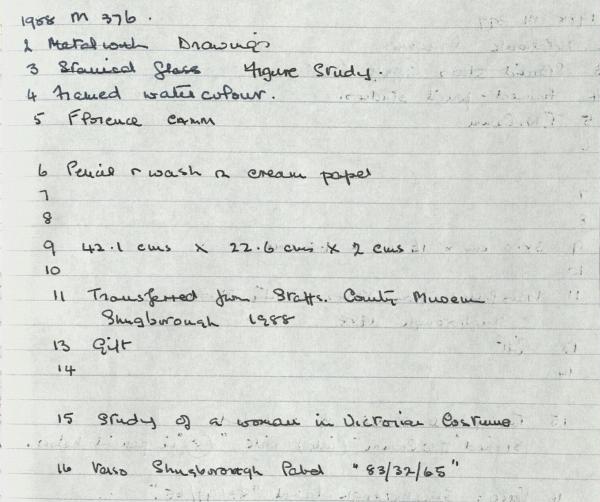 1988 M 376.
2 Metalwork Drawings
3 Stained Glass Figure Study.
4 Framed watercolour.
5 Florence CAMM
6 Pencil & wash on cream paper
7
8
9 42.1 cms x 22.6 cms x 2 cms
10
11 Transferred from Staffs. County Museum
Shugborough 1988
13 Gift
14
15 Study of a woman in Victorian Costume
16 Verso Shugborough Label "83/32/65"